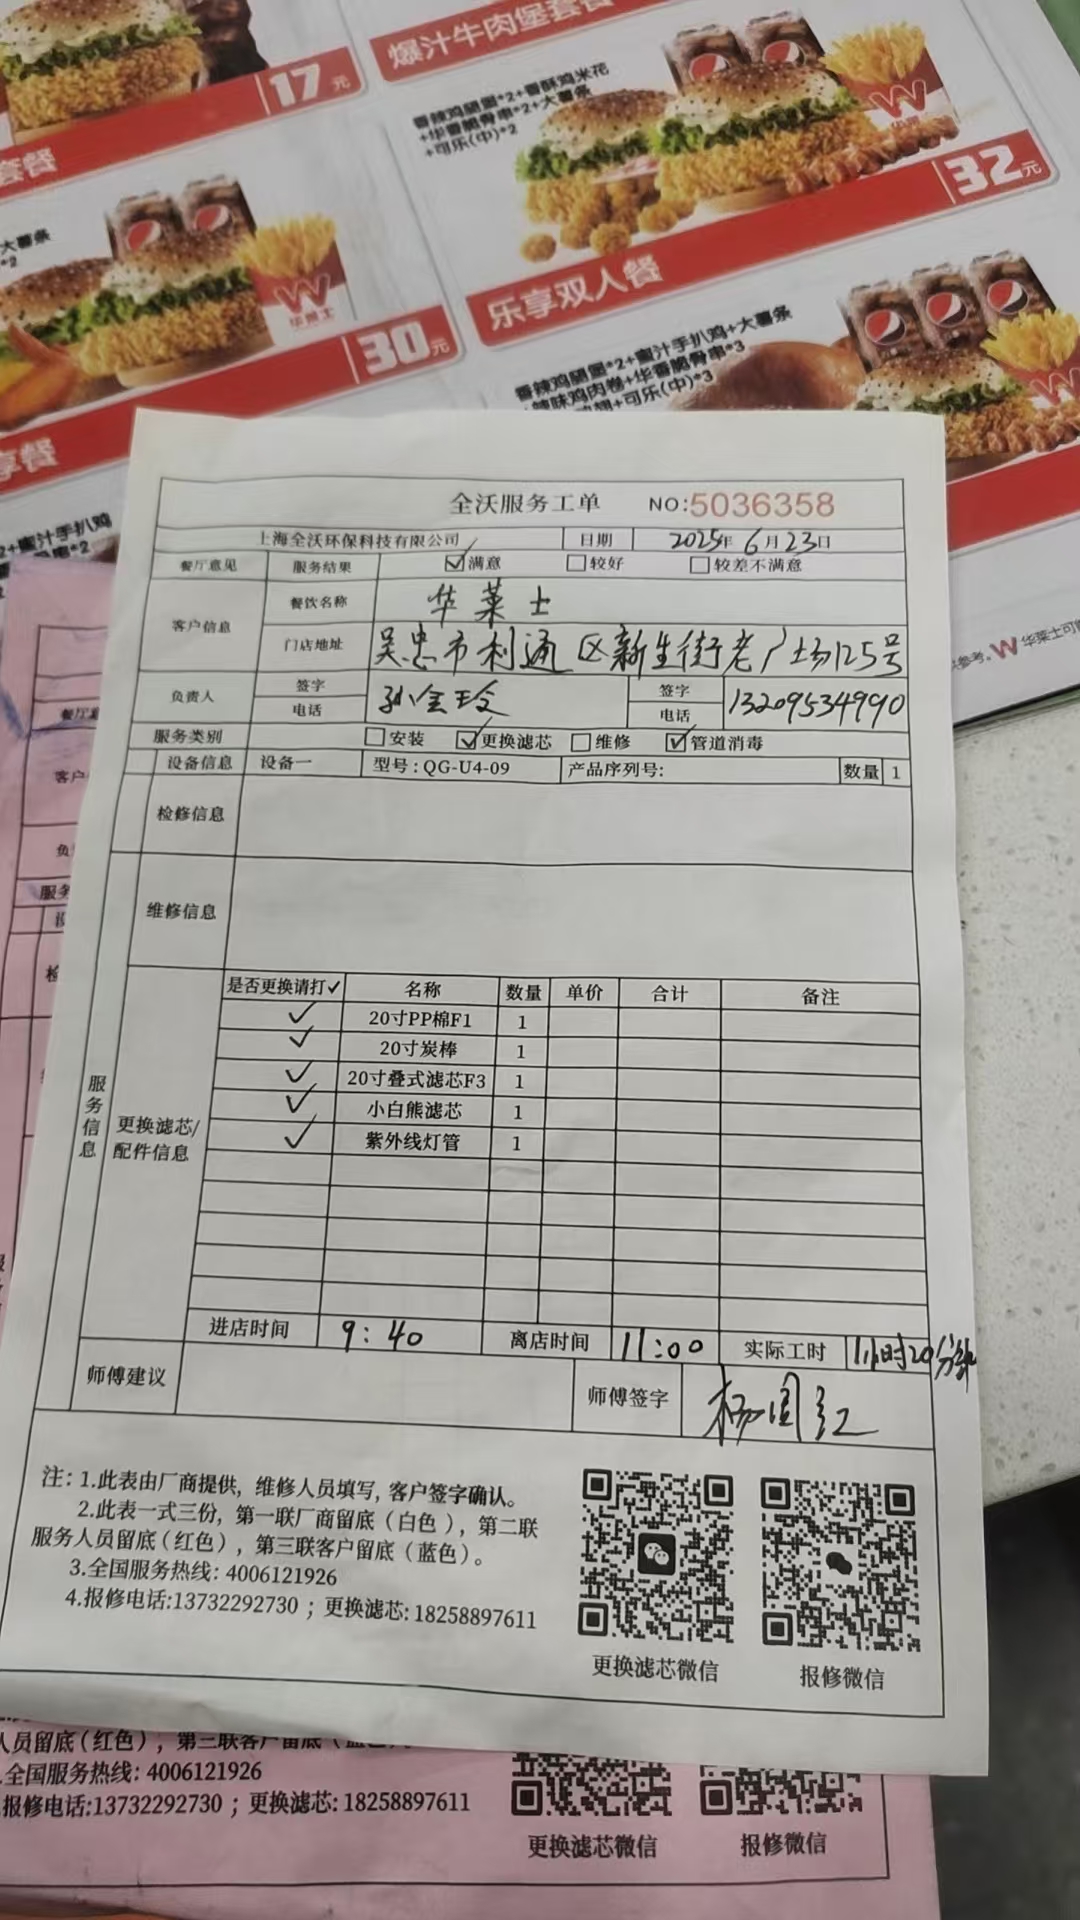 17元
爆汁牛肉堡套餐
香辣鸡腿堡*2+香酥鸡米花
+华香脆骨串*2+大薯条
+可乐(中)*2
32元
套餐
大薯条
*2
华莱士
30元
乐享双人餐
香辣鸡腿堡*2+蜜汁手扒鸡+大薯条
辣味鸡肉卷+华香脆骨串*3
翅+可乐(中)*3
享餐
2+蜜汁手扒鸡
华莱士可
供参考。
全沃服务工单 NO:5036358
上海全沃环保科技有限公司 日期 2025年6月23日
餐厅意见 服务结果 ☑满意 □较好 □较差不满意
客户信息 餐饮名称 华莱士
门店地址 吴忠市利通区新生街老广场125号
负责人 签字 电话 孙金玲 签字 电话 13209534990
服务类别 □安装 ☑更换滤芯 □维修 ☑管道消毒
设备信息 设备一 型号:QG-U4-09 产品序列号: 数量 1
检修信息
维修信息
服务信息
更换滤芯/配件信息
是否更换请打✓ 名称 数量 单价 合计 备注
✓ 20寸PP棉F1 1
✓ 20寸炭棒 1
✓ 20寸叠式滤芯F3 1
✓ 小白熊滤芯 1
✓ 紫外线灯管 1
进店时间 9:40 离店时间 11:00 实际工时 1小时20分钟
师傅建议 师傅签字
注: 1.此表由厂商提供, 维修人员填写, 客户签字确认。
2.此表一式三份, 第一联厂商留底(白色), 第二联
服务人员留底(红色), 第三联客户留底(蓝色)。
3.全国服务热线: 4006121926
4.报修电话:13732292730 ; 更换滤芯: 18258897611
更换滤芯微信 报修微信
人员留底(红色), 第三联客户留底
全国服务热线: 4006121926
报修电话:13732292730 ; 更换滤芯: 18258897611
更换滤芯微信 报修微信